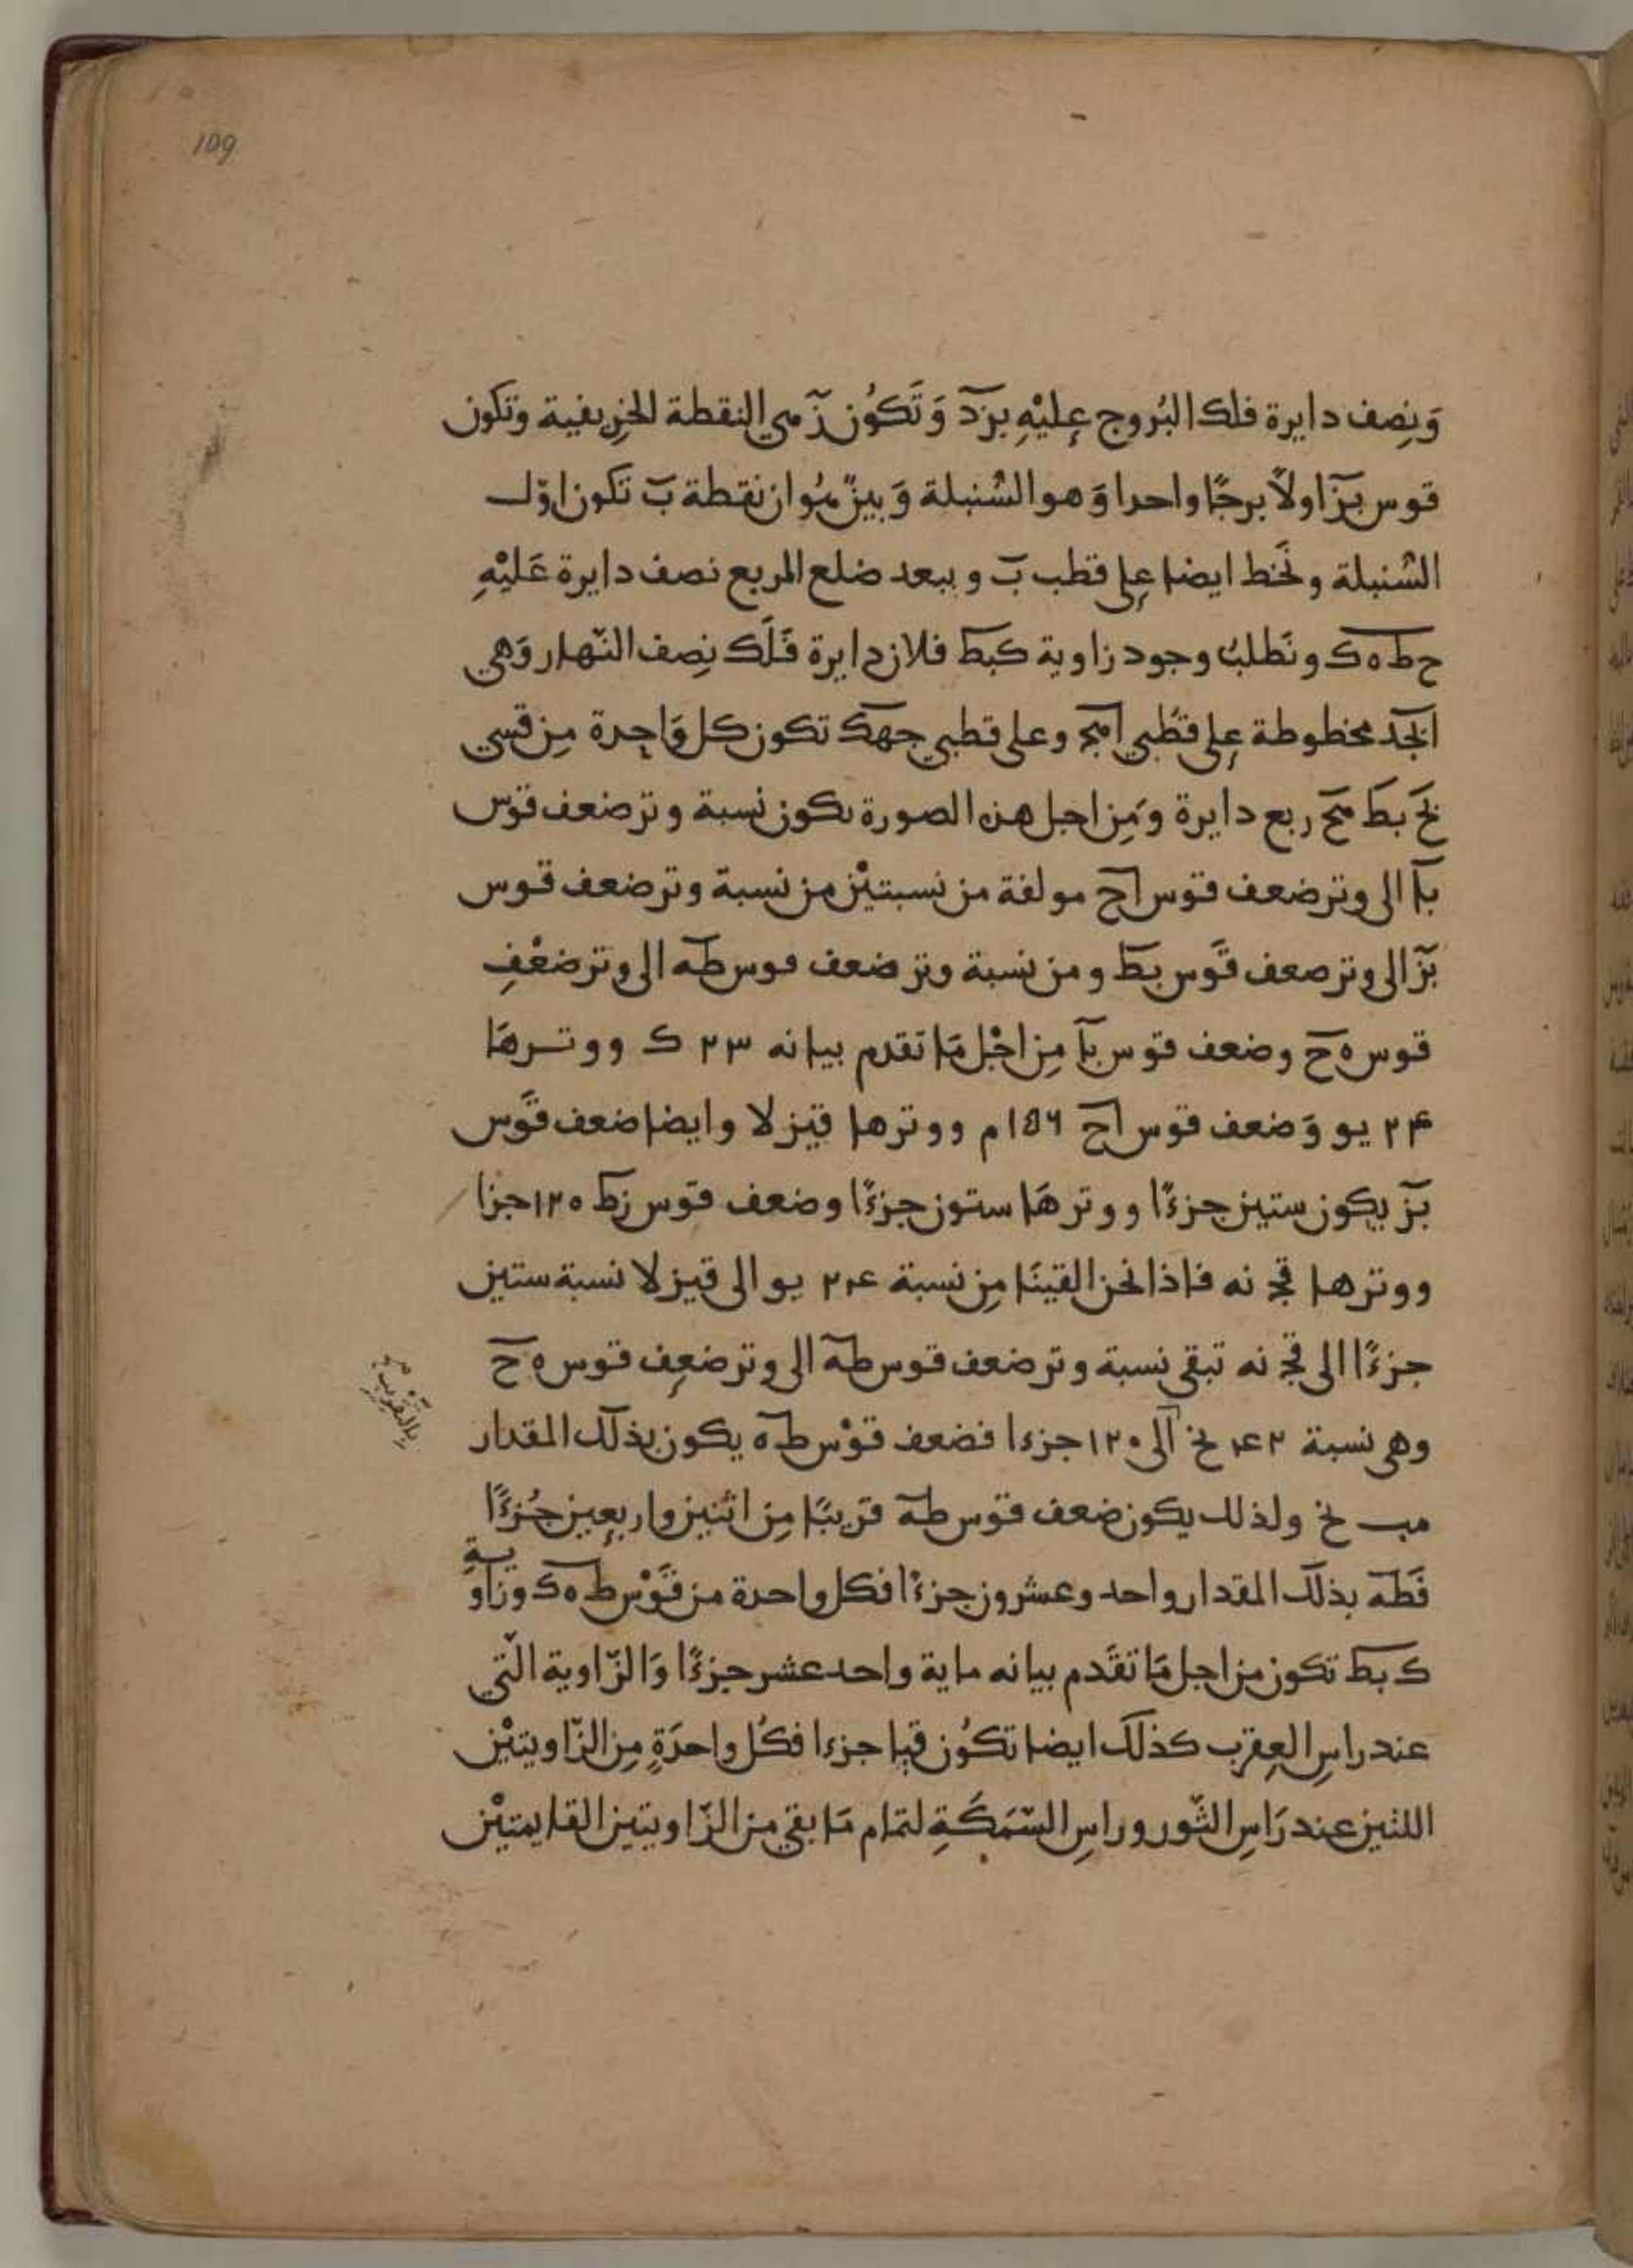 109
وَنِصف دايرة فلك البُروج عِليْهِ بزد وَتَكوُن ز هي النقطة الخرِيفية وتكون
قوس بز اولاً برجًا واحدا وَهو السُنبلة وَبينٌ هُو ان نقطة ب تكون اوّل
السُنبلة ونَخط ايضا عِلى قطب ب وببعد ضلع المربع نصف دايرة عَليْهِ
ح ط ه ك ونَطلبُ وجود زاوية كبط فلان دايرة فَلَك نِصف النّهار وَهي
ابجد مخطوطة عِلى قطُبي امج وعلى قطبي حهك تكون كل وَاحِدة مِن قسي
بح بط مح ربع دايرة وَمِن اجل هذه الصورة تكون نسبة وتر ضعف قوَس
با الى وتر ضعف قوَس اح مولفة من نسبتيْن من نسبة وتر ضعف قوس
بز الى وتر ضعف قوَس بط ومن نسبة وتر ضعف قوس طه الى وتر ضعْفِ
قوس ه ح وضعف قوس با مِن اجْل مَا تقدم بيانه ٢٣ ك ووترهَا
٢٤ يو وَضعف قوس اح ١٥٦ م ووترها قيز لا وايضا ضعف قوَس
بز يكون ستين جزءًا ووترهَا ستون جزءًا وضعف قوَس زط ١٢٠ جزا
ووترها قج نه فاذا نحن القينَا مِن نسبة ٢٤ يو الى قيز لا نسبة ستين
جزءًا الى قج نه تبقى نسبة وتر ضعف قوس طه الى وتر ضعِف قوس ه ح
وهي نسبة ٤٢ نح الى ١٢٠ جزءا فضعف قوْس ط ه يكون بذلك المقدار
بالتقريب
مب نح ولذلك يكون ضعف قوس طه قرَيبًا مِن اثنين واربعِين جُزءًا
فَطه بذلك المقدار واحد وعشرون جزءًا فكل واحدة من قَوْس ط ه ك وزاوية
ك بط تكون من اجل مَا تقَدم بيانه ماية واحد عشر جزءًا وَالزّاوية الّتي
عند راسِ العِقرب كذلك ايضا تكوُن قيا جزءا فكُل واحدَةٍ مِن الزّاويتيْن
اللتين عند رَاسِ الثّور وراسِ السّمَكَةِ لتمام مَا بقي من الزّاويتين القايمتيْن